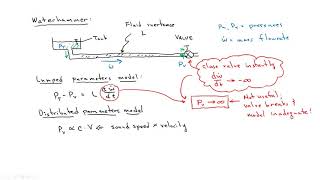 Waterhammer:
Tank
Fluid inertance
L
Valve
Pr
ẇ
Pv
Pr, Pv = pressures
ẇ = mass flowrate
Lumped parameters model:
Pr - Pv = L dẇ/dt
close valve instantly
dẇ/dt → -∞
Pv → ∞
Not useful; valve breaks & model inadequate!
Distributed parameters model
Pv ∝ c·V ∝ sound speed × velocity